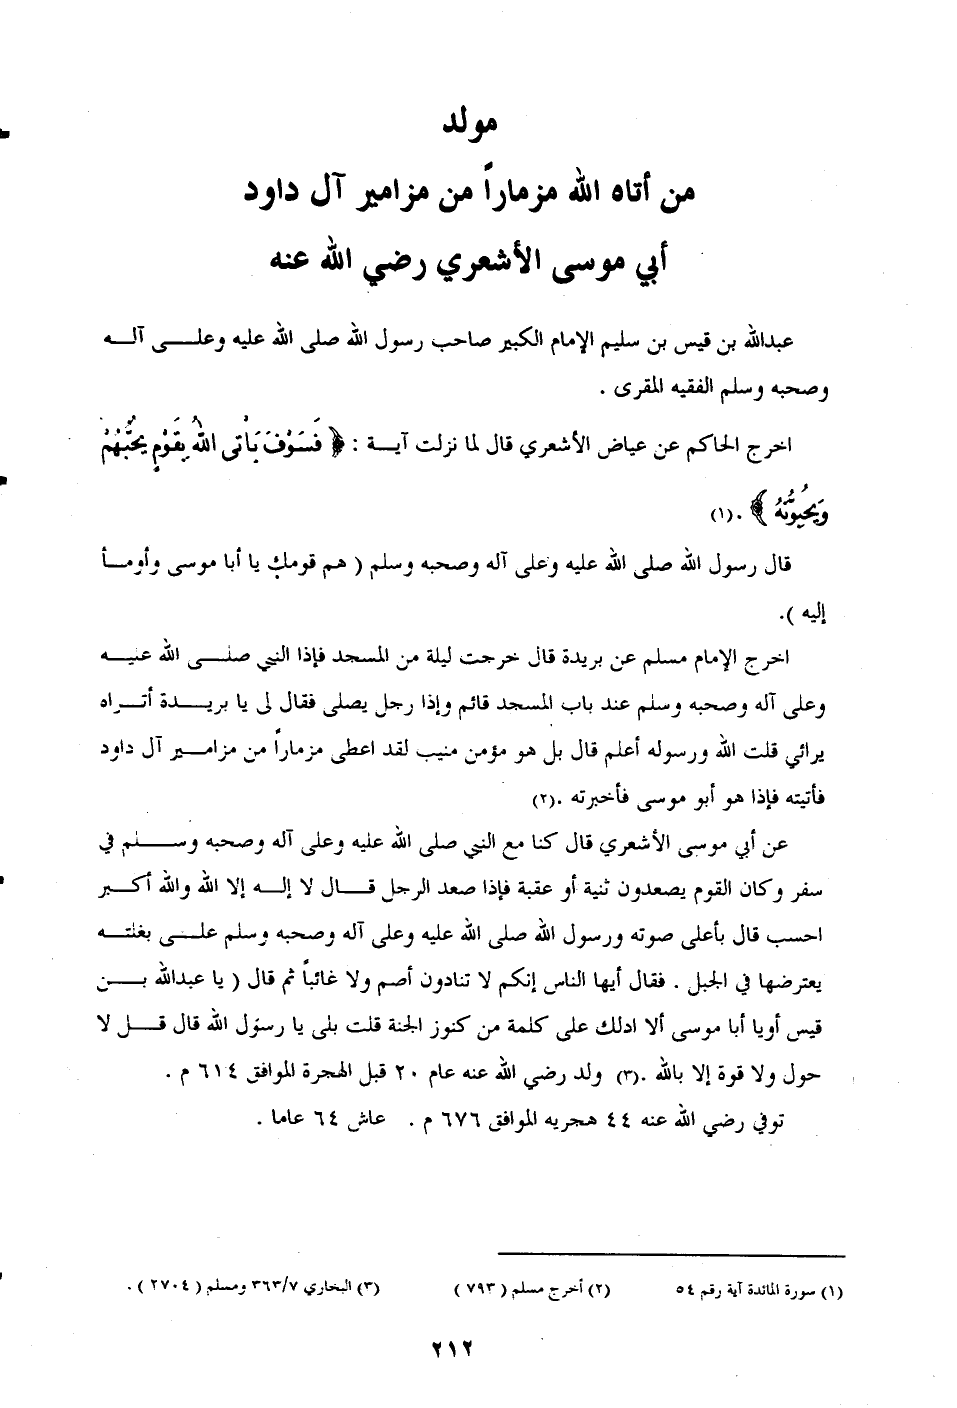 مولد
من أتاه الله مزماراً من مزامير آل داود
أبي موسى الأشعري رضي الله عنه
عبدالله بن قيس بن سليم الإمام الكبير صاحب رسول الله صلى الله عليه وعلى آله
وصحبه وسلم الفقيه المقرى .
اخرج الحاكم عن عياض الأشعري قال لما نزلت آية : ﴿ فَسَوْفَ يَأْتِى اللهُ بِقَوْمٍ يُحِبُّهُمْ
وَيُحِبُّونَهُ ﴾ .(١)
قال رسول الله صلى الله عليه وعلى آله وصحبه وسلم ( هم قومك يا أبا موسى وأومأ
إليه ).
اخرج الإمام مسلم عن بريدة قال خرجت ليلة من المسجد فإذا النبي صلى الله عليه
وعلى آله وصحبه وسلم عند باب المسجد قائم وإذا رجل يصلى فقال لى يا بريدة أتراه
يرائي قلت الله ورسوله أعلم قال بل هو مؤمن منيب لقد اعطى مزماراً من مزامير آل داود
فأتيته فإذا هو أبو موسى فأخبرته .(٢)
عن أبي موسى الأشعري قال كنا مع النبي صلى الله عليه وعلى آله وصحبه وسلم في
سفر وكان القوم يصعدون ثنية أو عقبة فإذا صعد الرجل قال لا إله إلا الله والله أكبر
احسب قال بأعلى صوته ورسول الله صلى الله عليه وعلى آله وصحبه وسلم على بغلته
يعترضها في الجبل . فقال أيها الناس إنكم لا تنادون أصم ولا غائباً ثم قال ( يا عبدالله بن
قيس أويا أبا موسى ألا ادلك على كلمة من كنوز الجنة قلت بلى يا رسول الله قال قل لا
حول ولا قوة إلا بالله .(٣) ولد رضي الله عنه عام ٢٠ قبل الهجرة الموافق ٦١٤ م .
توفي رضي الله عنه ٤٤ هجريه الموافق ٦٧٦ م . عاش ٦٤ عاما .
(١) سورة المائدة آية رقم ٥٤ (٢) أخرج مسلم ( ٧٩٣ ) (٣) البخاري ٣٦٣/٧ ومسلم ( ٢٧٠٤ ) .
٢١٢